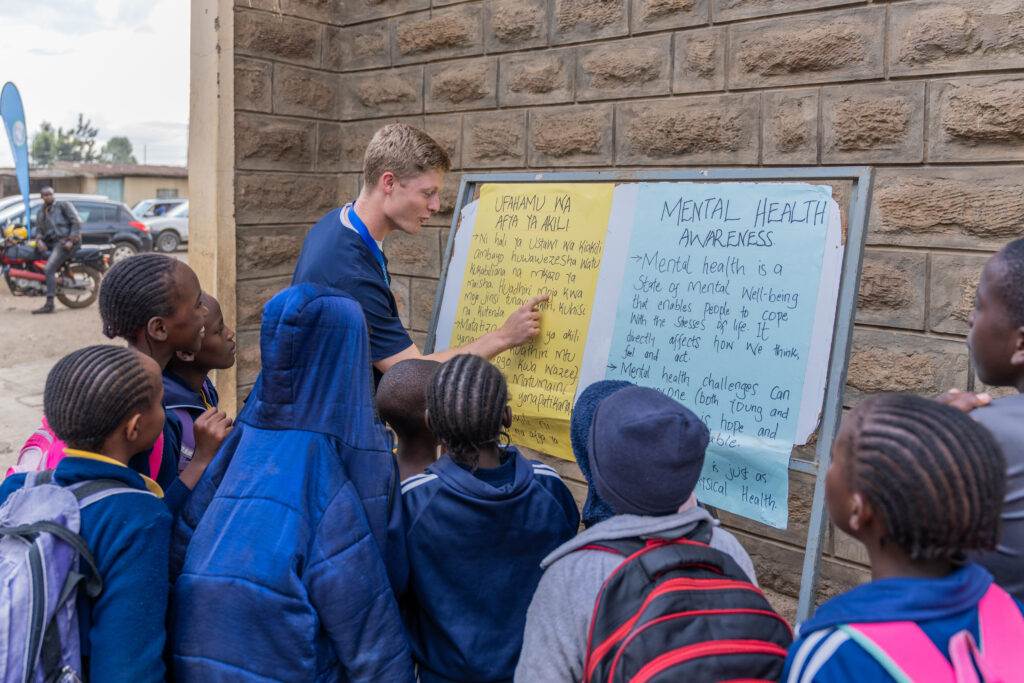 UFAHAMU WA
AFYA YA AKILI
→ Ni hali ya Ustawi wa Kiakili
ambayo huwawezesha watu
kukabiliana na mikazo ya
maisha. Huathiri moja kwa
moja jinsi kuhisi
na kutenda
→ ya akili
huathiri mtu
kwa wazee)
matumaini
yanapatikana
ni
na afya ya
MENTAL HEALTH
AWARENESS
→ Mental health is a
State of Mental Well-being
that enables people to cope
With the Stresses of life. It
directly affects how We think,
feel and act.
→ Mental health challenges Can
(both Young and
is hope and
is just as
Physical Health.